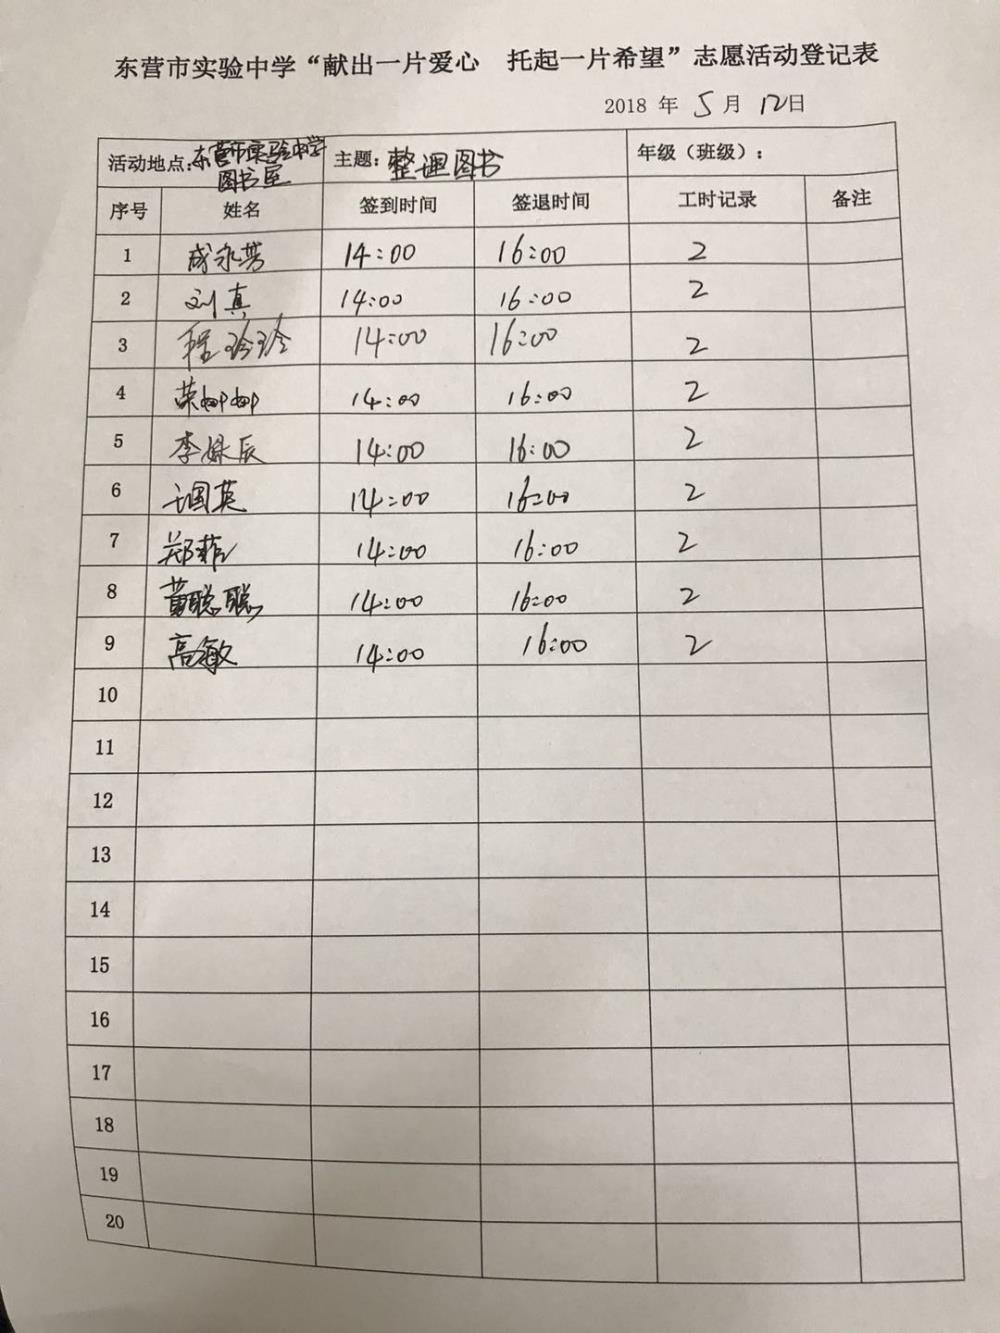 东营市实验中学“献出一片爱心 托起一片希望”志愿活动登记表
2018 年 5 月 12日
活动地点:东营市实验中学图书屋 主题:整理图书 年级（班级）:
序号 姓名 签到时间 签退时间 工时记录 备注
1 成永芳 14:00 16:00 2
2 刘真 14:00 16:00 2
3 程玲玲 14:00 16:00 2
4 荣娜娜 14:00 16:00 2
5 李 辰 14:00 16:00 2
6 国英 14:00 16:00 2
7 郑菲 14:00 16:00 2
8 黄聪聪 14:00 16:00 2
9 高敏 14:00 16:00 2
10
11
12
13
14
15
16
17
18
19
20